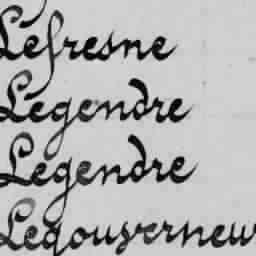 Lefresne
Legendre
Legendre
Legouverneur